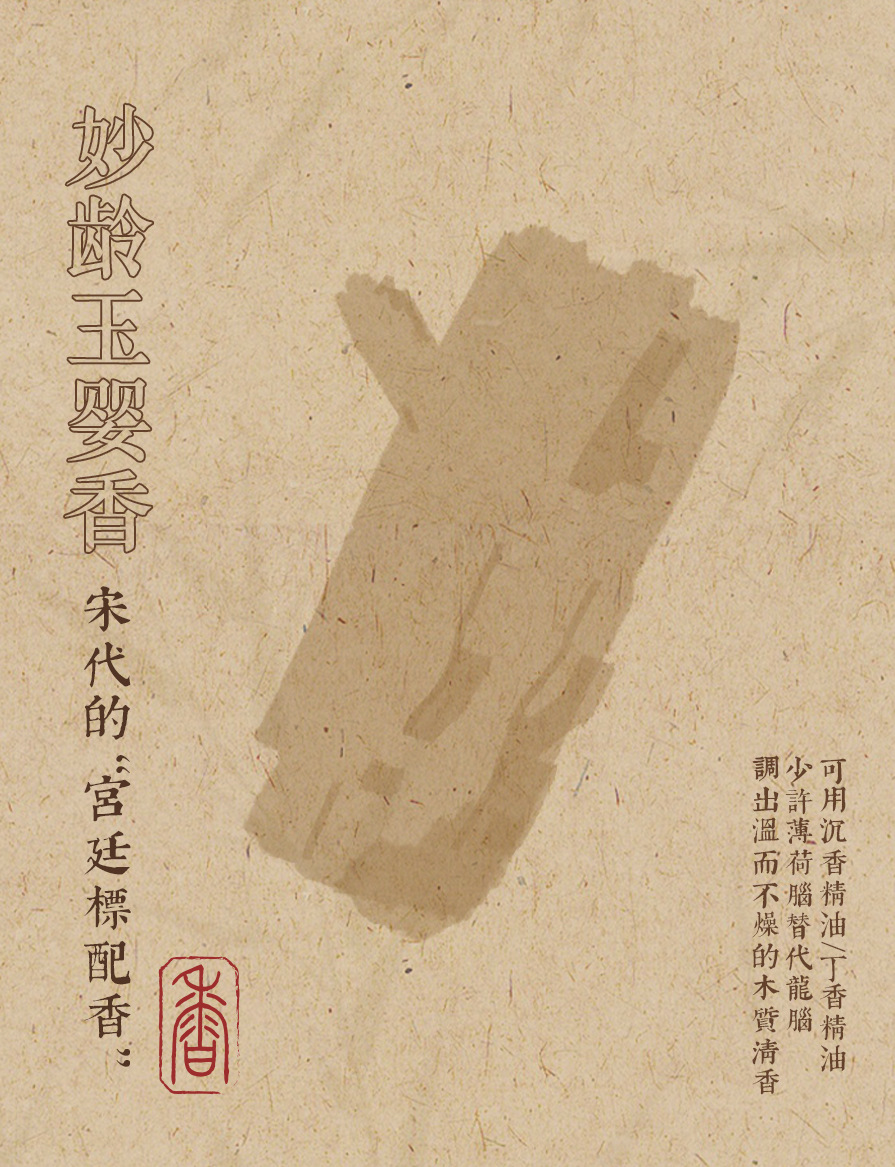 妙龄玉婴香
宋代的“宮廷標配香”
香
可用沉香精油/丁香精油
少許薄荷腦替代龍腦
調出溫而不燥的木質清香